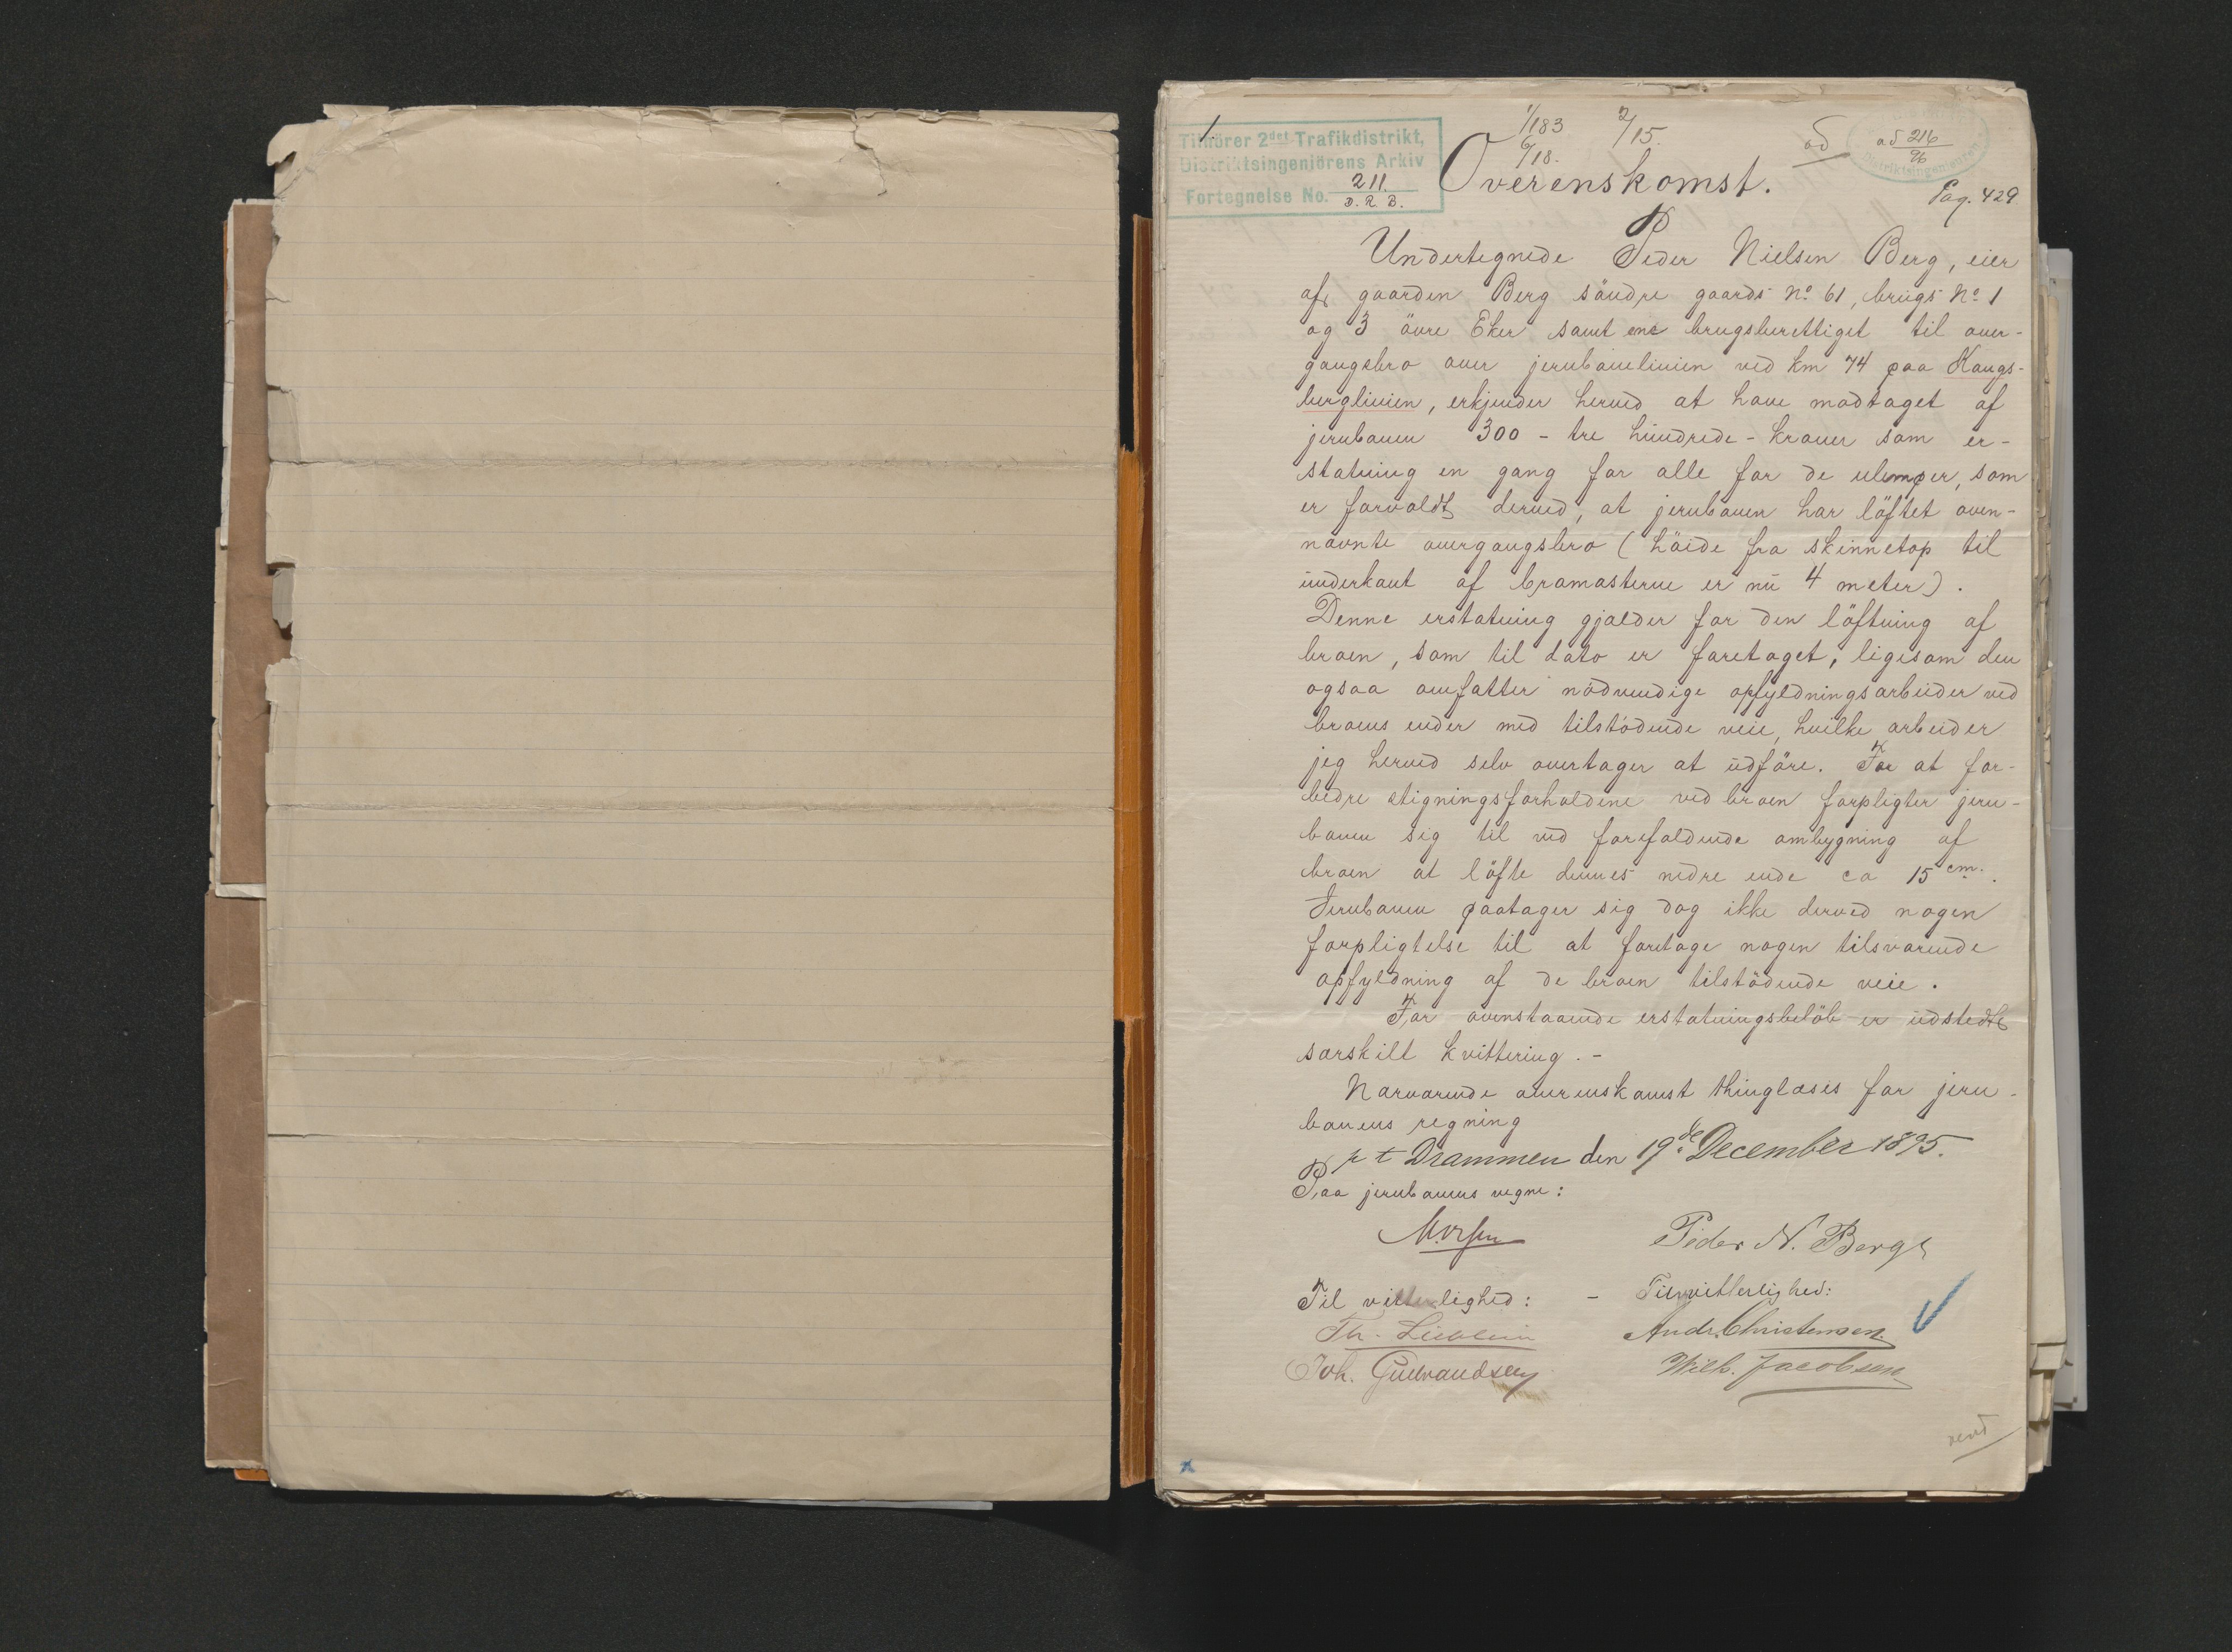 1.
1/183 2/15
6/18.
ad
ad 216/96
Distriktsingeniøren
Tilhörer 2det Trafikdistrikt,
Distriktsingeniörens Arkiv
Fortegnelse No. 211.
D. R. B.
Overenskomst.
Pag. 429
Undertegnede Peder Nielsen Berg, eier
af gaarden Berg söndre gaards No 61, brugs No 1
og 3 övre Eker samt ene brugsberettiget til over-
gangsbro over jernbanelinien ved km 74 paa Kongs-
berglinien, erkjender herved at have modtaget af
jernbanen 300 - tre hundrede - kroner som er-
statning en gang for alle for de ulemper, som
er forvoldt derved, at jernbanen har löftet oven-
nævnte overgangsbro (höide fra skinnetop til
underkant af bromasterne er nu 4 meter).
Denne erstatning gjælder for den löftning af
broen, som til dato er foretaget, ligesom den
ogsaa omfatter nödvendige opfyldningsarbeider ved
broens ender med tilstödende veie, hvilke arbeider
jeg herved selv overtager at udföre. For at for-
bedre stigningsforholdene ved broen forpligter jern-
banen sig til ved forefaldende ombygning af
broen at löfte dennes nedre ende ca 15 cm.
Jernbanen paatager sig dog ikke derved nogen
forpligtelse til at foretage nogen tilsvarende
opfyldning af de broen tilstödende veie.
For ovenstaaende erstatningsbelöb er udstedt
særskilt kvittering. -
Nærværende overenskomst thinglæses for jern-
banens regning
p t Drammen den 19de December 1895.
Paa jernbanens vegne:
Peder N. Berg
Til vitterlighed: - Til vitterlighed:
Andr. Christensen.
Joh. Gudbrandsen Wilh. Jacobsen
vend